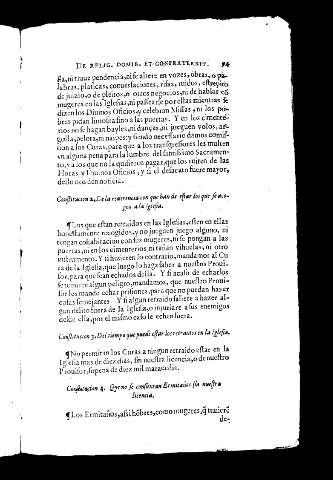 DE RELIG. DOMIB. ET CONFRATERNIT. 94
sia, ni traue pendencia, ni se altere en vozes, obras, o pa-
labras, platicas, conuersaciones, risas, ruidos,
de juizio, o de pleitos, o otros negocios, ni de hablar cõ
mugeres en las Iglesias, ni passearse por ellas mientras se
dizen los Diuinos Oficios y celebran Missas, ni los po-
bres pidan limosna sino a las puertas. Y en los cimente-
rios no se hagan bayles, ni danças, ni jueguen bolos, ar-
golla, pelota, ni naipes: y siendo necessario damos comis-
sion a los Curas, para que a los transgressores les multen
en alguna pena para la lumbre del santissimo Sacramen-
to, y a los que no la quisieren pagar, que los euiten de las
Horas y Diuinos Oficios, y si el desacato fuere mayor,
dello nos den noticia.
Constitucion 2. De la reuerencia con que han de estar los que se aco-
gen a la Iglesia.
¶Los que estan retraidos en las Iglesias, esten en ellas
honestamente recogidos, y no jueguen juego alguno, ni
tengan conuersacion con las mugeres, ni se pongan a las
puertas, ni en los cimenterios, ni tañan vihuelas, ni otro
instrumentos. Y si hizieren lo contrario, mandamos al Cu
ra de la Iglesia, que luego lo haga saber a nuestro Proui-
sor, para que sean echados della. Y si acaso de echarlos
se temiere algun peligro, mandamos, que nuestro Proui-
sor les mande echar prisiones, para que no puedan hazer
cosas semejantes. Y si algun retraido saliere a hazer al-
gun delito fuera de la Iglesia, o injuriare a sus enemigos
desde ella, por el mismo caso le echen fuera.
Constitucion 3. Del tiempo que puede estar los retraidos en la Iglesia.
¶No permitan los Curas a ningun retraido estar en la
Iglesia mas de diez dias, sin nuestra licencia, o de nuestro
Prouisor, so pena de diez mil marauedis.
Constitucion 4. Que no se consientan Ermitaños sin nuestra
licencia.
¶Los Ermitaños, assi hõbres, como mugeres, q̃ traxerẽ
de-